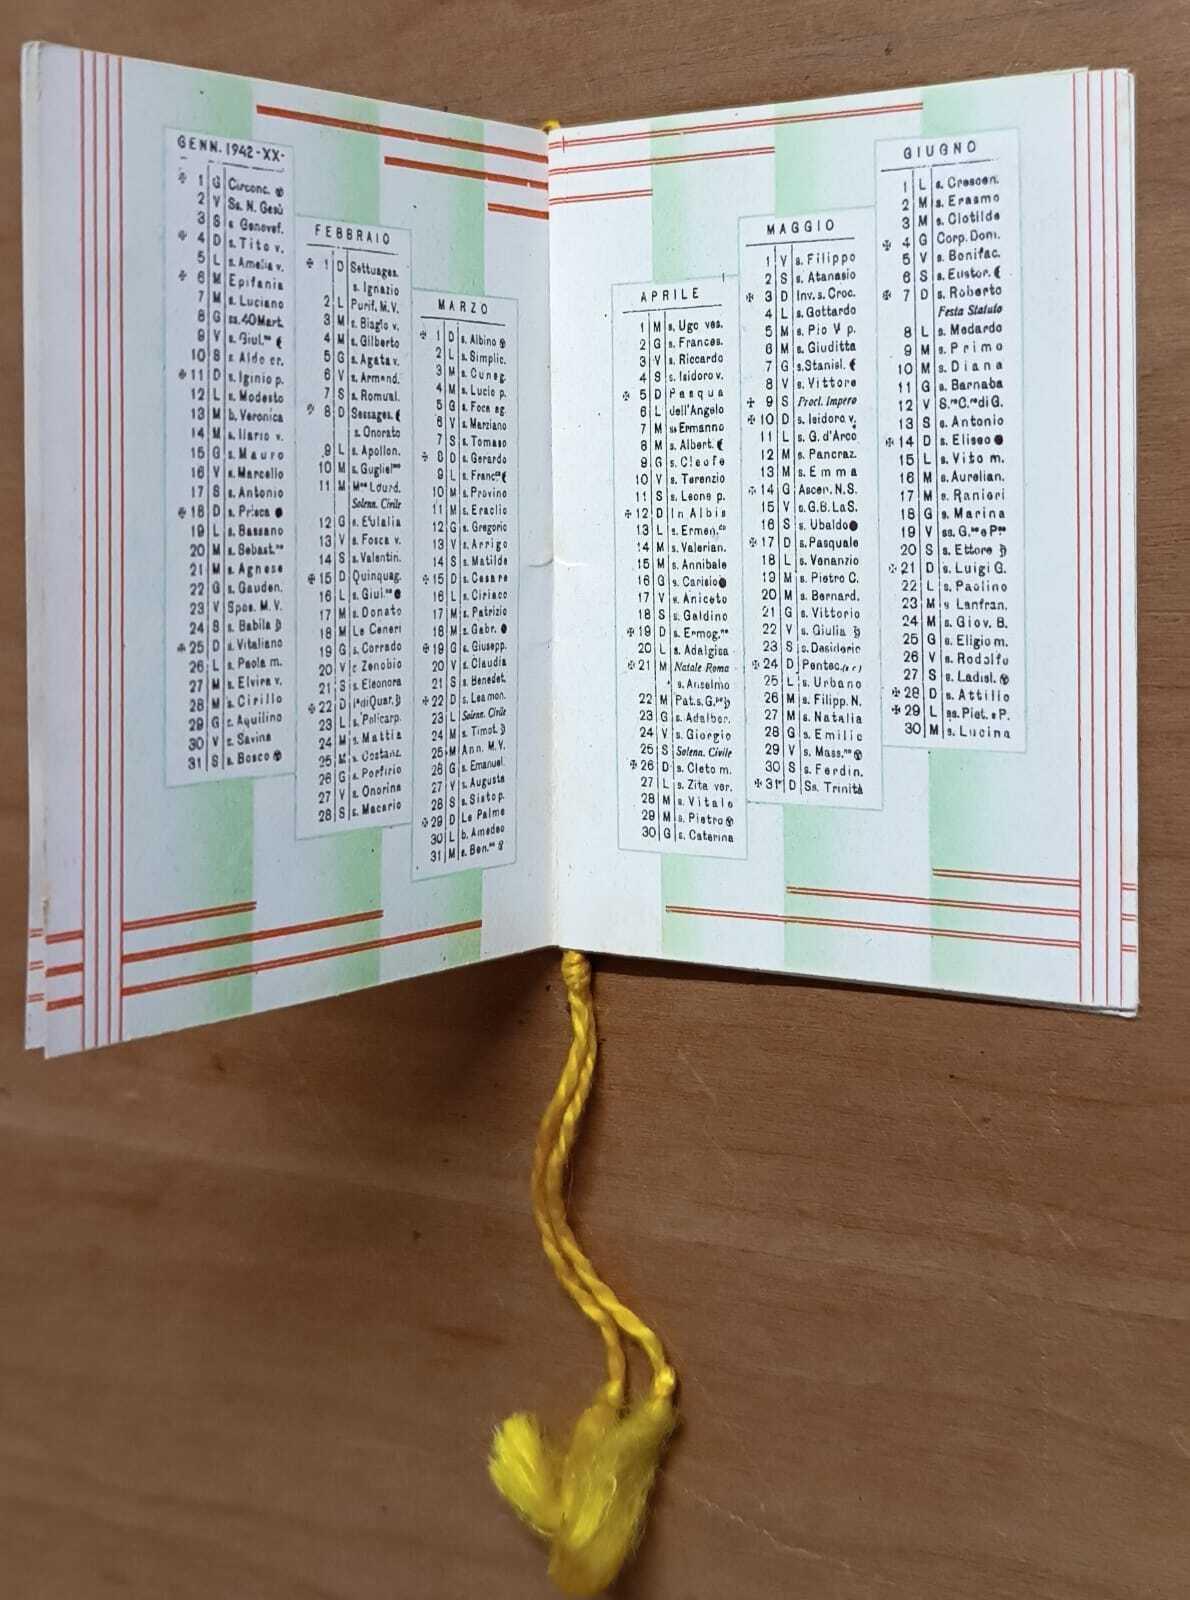 GENN. 1942-XX-
✠ 1 G Circonc.
2 V Ss. N. Gesù
3 S s. Genovef.
✠ 4 D s. Tito v.
5 L s. Amelia v.
✠ 6 M Epifania
7 M s. Luciano
8 G ss. 40 Mart.
9 V s. Giul.
10 S s. Aldo er.
✠ 11 D s. Iginio p.
12 L s. Modesto
13 M b. Veronica
14 M s. Ilario v.
15 G s. Mauro
16 V s. Marcello
17 S s. Antonio
✠ 18 D s. Prisca ●
19 L s. Bassano
20 M s. Sebast.
21 M s. Agnese
22 G s. Gauden.
23 V Spos. M. V.
24 S s. Babila
✠ 25 D s. Vitaliano
26 L s. Paola m.
27 M s. Elvira v.
28 M s. Cirillo
29 G s. Aquilino
30 V s. Savina
31 S s. Bosco
FEBBRAIO
✠ 1 D Settuages.
s. Ignazio
2 L Purif. M. V.
3 M s. Biagio v.
4 M s. Gilberto
5 G s. Agata v.
6 V s. Armand.
7 S s. Romual.
✠ 8 D Sessages.
s. Onorato
9 L s. Apollon.
10 M s. Gugliel.mo
11 M M.na Lourd.
Solenn. Civile
12 G s. Eulalia
13 V s. Fosca v.
14 S s. Valentin.
✠ 15 D Quinquag.
16 L s. Giul.na ●
17 M s. Donato
18 M Le Ceneri
19 G s. Corrado
20 V s. Zenobio
21 S s. Eleonora
✠ 22 D 1ª di Quar.
23 L s. Policarp.
24 M s. Mattia
25 M s. Costanz.
26 G s. Porfirio
27 V s. Onorina
28 S s. Macario
MARZO
✠ 1 D s. Albino
2 L s. Simplic.
3 M s. Cuneg.
4 M s. Lucio p.
5 G s. Foca ag.
6 V s. Marziano
7 S s. Tomaso
✠ 8 D s. Gerardo
9 L s. Franc.ca
10 M s. Provino
11 M s. Eraclio
12 G s. Gregorio
13 V s. Arrigo
14 S s. Matilde
✠ 15 D s. Cesare
16 L s. Ciriaco
17 M s. Patrizio
18 M s. Gabr. ●
✠ 19 G s. Giusepp.
20 V s. Claudia
21 S s. Benedet.
✠ 22 D s. Lea mon.
23 L Solenn. Civile
24 M s. Timot.
25 M Ann. M. V.
26 G s. Emanuel.
27 V s. Augusta
28 S s. Sisto p.
✠ 29 D Le Palme
30 L b. Amedeo
31 M s. Ben.
APRILE
1 M s. Ugo ves.
2 G s. Frances.
3 V s. Riccardo
4 S s. Isidoro v.
✠ 5 D Pasqua
6 L dell'Angelo
7 M s. Ermanno
8 M s. Albert.
9 G s. Cleofe
10 V s. Terenzio
11 S s. Leone p.
✠ 12 D In Albis
13 L s. Ermen.do
14 M s. Valerian.
15 M s. Annibale
16 G s. Carisio ●
17 V s. Aniceto
18 S s. Galdino
✠ 19 D s. Ermog.ne
20 L s. Adalgisa
✠ 21 M Natale Roma
s. Anselmo
22 M Pat. s. G.pe
23 G s. Adalber.
24 V s. Giorgio
25 S Solenn. Civile
✠ 26 D s. Cleto m.
27 L s. Zita ver.
28 M s. Vitale
29 M s. Pietro
30 G s. Caterina
MAGGIO
1 V s. Filippo
2 S s. Atanasio
✠ 3 D Inv. s. Croc.
4 L s. Gottardo
5 M s. Pio V p.
6 M s. Giuditta
7 G s. Stanisl.
8 V s. Vittore
✠ 9 S Procl. Impero
✠ 10 D s. Isidoro v.
11 L s. G. d'Arco
12 M s. Pancraz.
13 M s. Emma
✠ 14 G Ascen. N. S.
15 V s. G. B. La S.
16 S s. Ubaldo ●
✠ 17 D s. Pasquale
18 L s. Venanzio
19 M s. Pietro C.
20 M s. Bernard.
21 G s. Vittorio
22 V s. Giulia
23 S s. Desiderio
✠ 24 D Pentec.
25 L s. Urbano
26 M s. Filipp. N.
27 M s. Natalia
28 G s. Emilio
29 V s. Mass.no
30 S s. Ferdin.
✠ 31 D Ss. Trinità
GIUGNO
1 L s. Crescen.
2 M s. Erasmo
3 M s. Clotilde
✠ 4 G Corp. Dom.
5 V s. Bonifac.
6 S s. Eustor.
✠ 7 D s. Roberto
Festa Statuto
8 L s. Medardo
9 M s. Primo
10 M s. Diana
11 G s. Barnaba
12 V S.ro C.re di G.
13 S s. Antonio
✠ 14 D s. Eliseo ●
15 L s. Vito m.
16 M s. Aurelian.
17 M s. Ranieri
18 G s. Marina
19 V ss. G.so e P.so
20 S s. Ettore
✠ 21 D s. Luigi G.
22 L s. Paolino
23 M s. Lanfran.
24 M s. Giov. B.
25 G s. Eligio m.
26 V s. Rodolfo
27 S s. Ladisl.
✠ 28 D s. Attilio
✠ 29 L ss. Piet. e P.
30 M s. Lucina